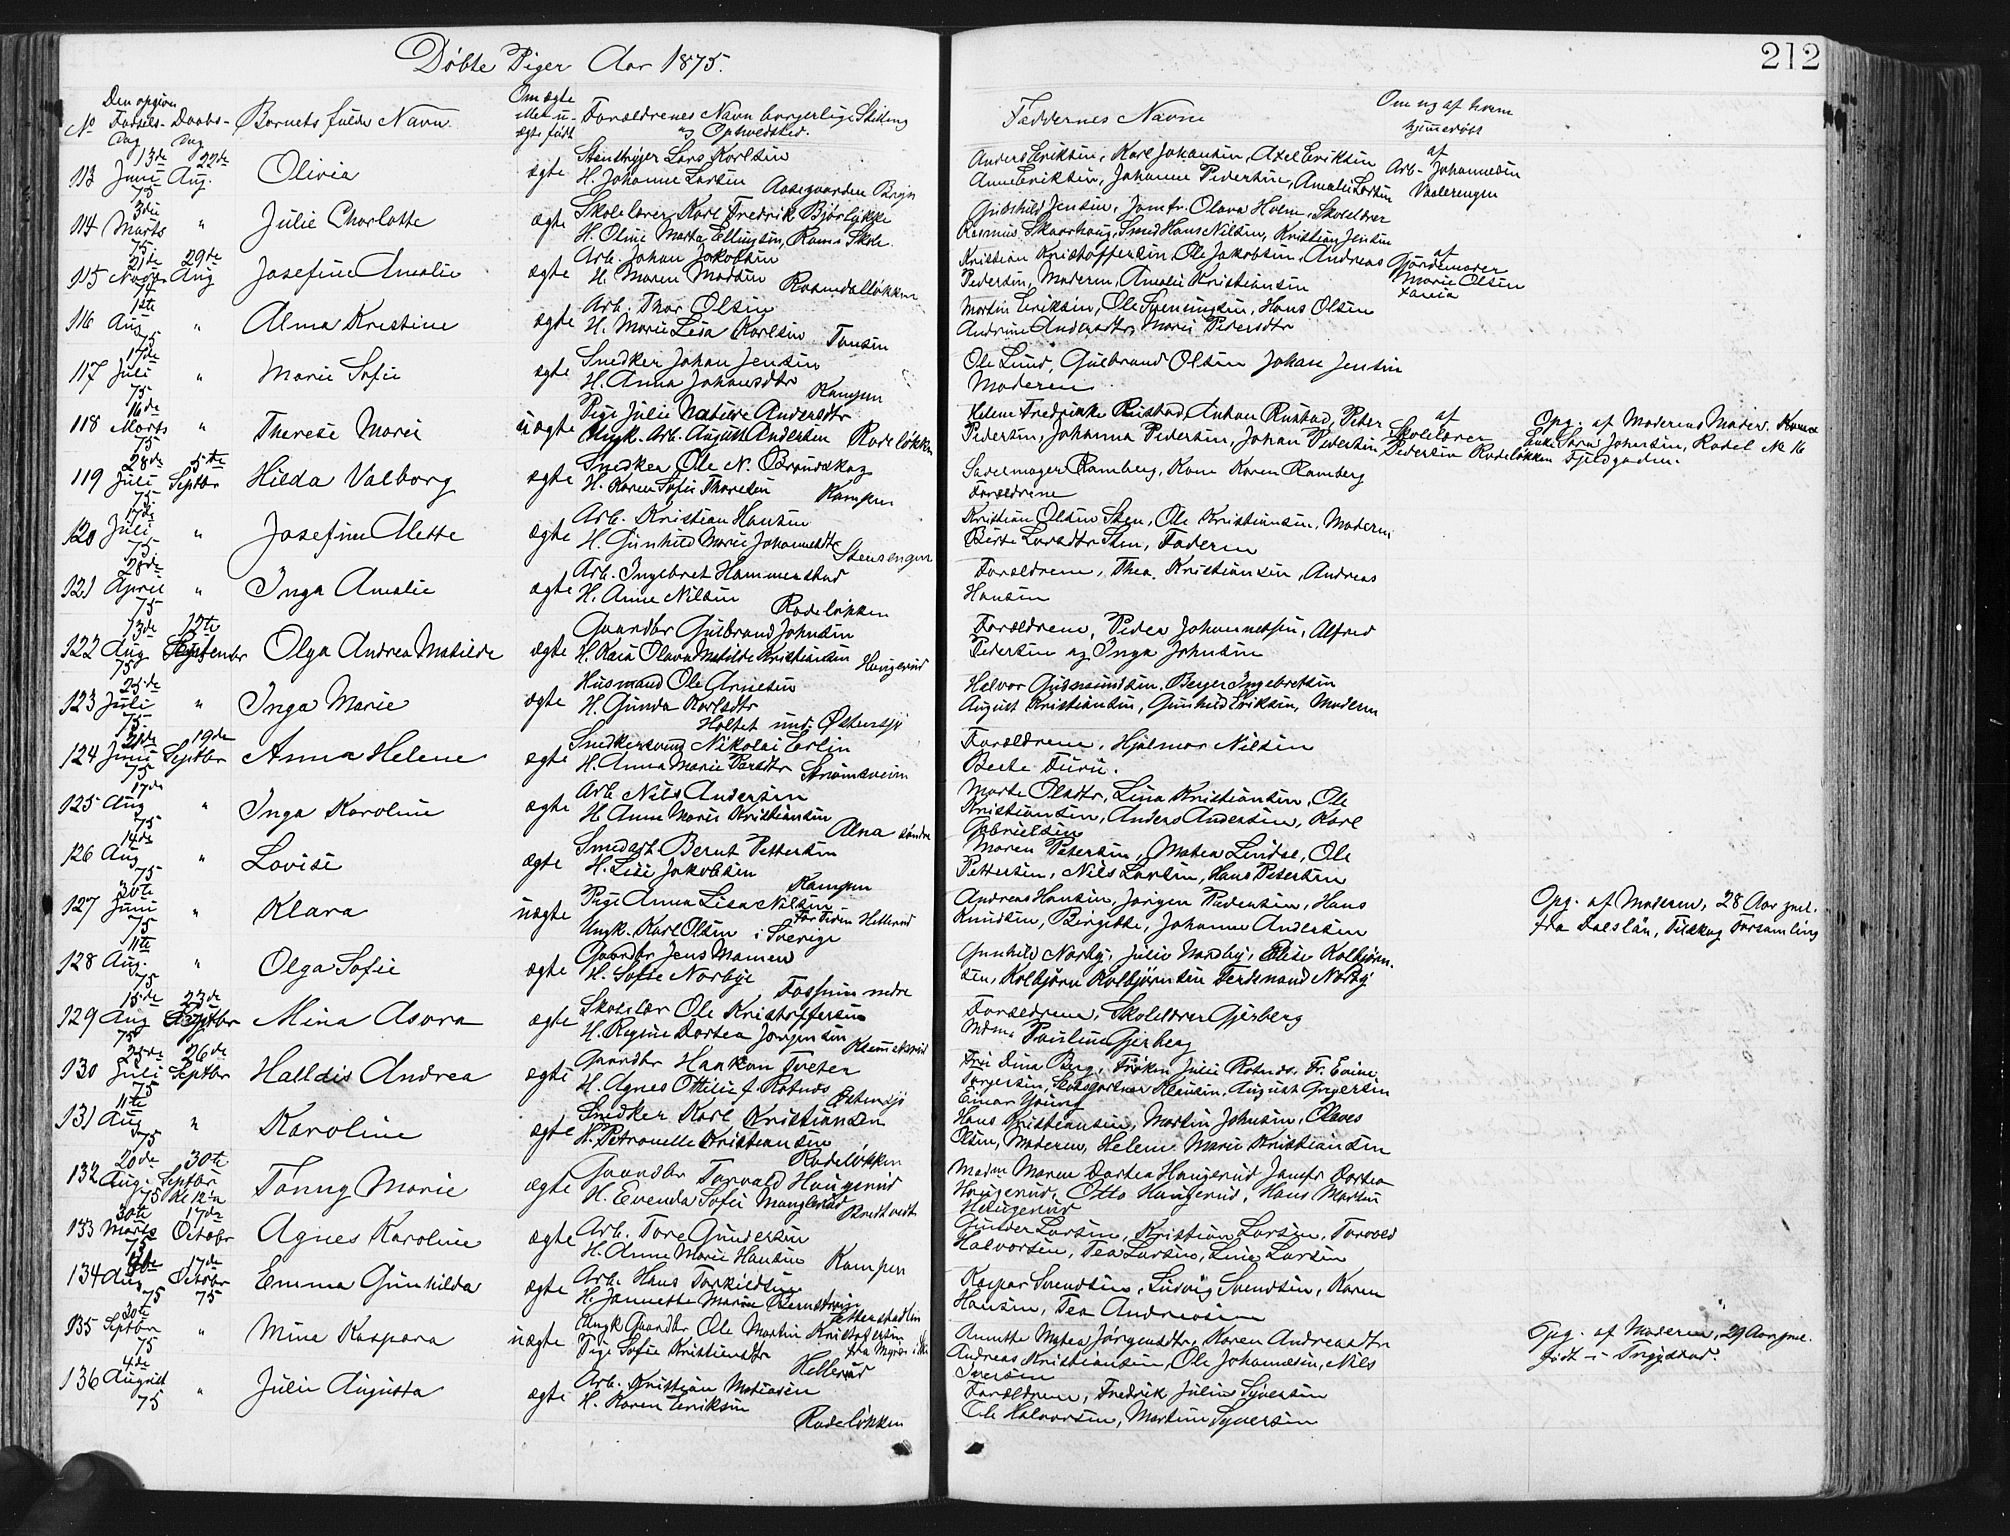 Døbte Piger Aar 1875.
212
No Den opgivne Fødsels-Dag Daabs-Dag Barnets fulde Navn Om ægte eller uægte født Forældrenes Navn borgerlige Stilling og Opholdsted. Faddernes Navne Om og af hvem hjemmedøbt
113 13de Juni 75 22de Aug. Olivia ægte Lars Karlsen
H. Johanne Larsen Aasegaarden Bryn
Anders Eriksen, Karl Johansen, Axel Eriksen
Anne Eriksen, Johanne Pedersen, Amalie Larsen
af Arb. Johannesen Vaalerengen
114 3die Marts 75 " Julie Charlotte ægte Skolelærer Karl Fredrik Bjørlykke
H. Oline Marta Ellingsen, Skole
Gudshild Jensen, Jomfr. Olava Holm, Skolelærer
Rasmus Skaarhaug, Smed Hans Nilsen, Kristian Jensen
115 21de Novbr 74 29de Aug Josefine Amalie ægte Arb. Johan Jakobsen
H. Maren Madsen Rosendalløkken
Kristian Kristoffersen, Ole Jakobsen, Andreas
Pedersen, Moderen, Amalie Kristiansen
af Gjordemoder Marie Olsen
116 1ste Aug 75 " Alma Kristine ægte Arb. Thor Olsen
H. Marie Lisa Karlsen Tonsen
Martin Eriksen, Ole Svenningsen, Hans Olsen
Andrine Andersdtr, Marie Pedersdtr
117 17de Juli 75 " Marie Sofie ægte Snedker Johan Jensen
H. Anna Johansdtr Kampen
Ole Lund, Gulbrand Olsen Johan Jensen
Moderen
118 16de Marts 75 " Therese Marie uægte Pige Julie Andersdtr
Ungk. Arb. August Andersen Rodeløkken
Helene Fredrikke Ruistad, Anton Ruistad, Peter
Pedersen, Johanna Pedersen, Johan Pedersen
af Skolelærer Pedersen Rodeløkken
Opg. af Moderens Moder, Kone
Sara Johnsen, Rodel No 16
Fjeldgaden.
119 28de Juli 75 5te Septbr Hilda Valborg ægte Snedker Ole N. Brandskog
H. Karen Sofie Thoresen Kampen
Sadelmager Ramberg, Kone Karen Ramberg
Forældrene
120 17de Juli 75 " Josefine Mette ægte Arb. Kristian Hansen
H. Gunhild Marie Johannesdtr Stensengen
Kristian Olsen Sten, Ole Kristiansen, Moderen
Berte Larsdtr Sten, Faderen
121 28de April 75 " Inga Amalie ægte Arb. Ingebret Hammerstad
H. Anne Nilsen Rodeløkken
Forældrene, Thea Kristiansen, Andreas
Hansen
122 13de Aug 75 12te September Olga Andrea Matilde ægte Gaardbr Gulbrand Johnsen
H. Kaia Olava Matilde Kristiansen Haugerud
Forældrene, Peder Johannessen, Alfred
Pedersen og Inga Johnsen
123 25de Juli 75 " Inga Marie ægte Husmand Ole Arnesen
H. Gunda Karlsdtr Holtet und. Østensjø
Halvor Gudmundsen, Berger Ingebretsen
August Kristiansen, Gunhild Eriksen, Moderen
124 21de Juni 75 19de Septbr Anna Helene ægte Snedkersvend Nikolai Erlin
H. Anna Marie Larsdtr Strømsveien
Forældrene, Hjalmar Nilsen
Berte Furu.
125 17de Aug 75 " Inga Karoline ægte Arb Nils Andersen
H. Anne Marie Kristiansen Alna søndre
Marte Olsdtr, Lina Kristiansen, Ole
Kristiansen, Anders Andersen, Karl
Gabrielsen
126 14de Aug 75 " Lovise ægte Smedarb. Bernt Pettersen
H. Lise Jakobsen Kampen
Maren Petersen, Matea Lindse, Ole
Pettersen, Nils Larsen, Hans Petersen
127 30te Juni 75 " Klara uægte Pige Anna Lisa Nilsen
Ungk. Karl Olsen i Sverige
Andreas Hansen, Jørgen Pedersen, Hans
Knudsen, Birgitte, Johanne Andersen
Opg. af Moderen, 28 Aar gml.
fra Dalslån, Tisskog Forsamling
128 11te Aug. 75 " Olga Sofie ægte Gaardbr Jens Mamen
H. Sofie Norbye Fossum nedre
Gunhild Norby, Julie Nordby, Elise Kolbjørn-
sen, Kolbjørn Kolbjørnsen Ferdinand Norby
129 15de Aug 75 23de Septbr Mina Asora ægte Skolelær Ole Kristoffersen
H. Regine Dortea Jørgensen Klemetsrud
Forældrene, Skolelærer Gjerberg
Mdme Pauline Gjerberg
130 25de Juli 75 26de Septbr Halldis Andrea ægte Gaardbr Haakon Tveter
H. Agnes Ottilie f. Rotnes Østensjø
Frøken Julie Rotnes, Fr. Evine
Torgersen, Klausen, August Gregersen
Einar Young
131 11te Aug 75 " Karoline ægte Snedker Karl Kristiansen
H. Petronelle Kristiansen Rodeløkken
Hans Kristiansen, Martin Johnsen, Olaves
Olsen, Moderen, Helene Marie Kristiansen
132 20de Aug. 75 30te Septbr Fanny Marie ægte Gaardbr Torvald Haugerud
H. Evenda Sofie Manglerud Bredtvedt
Madm Maren Dortea Haugerud Jomfr Dortea
Haugerud, Otto Haugerud, Hans Martin
Haugerud
133 30te Marts 75 17de Octobr Agnes Karoline ægte Arb. Tore Gundersen
H. Anne Marie Hansen Kampen
Gunder Larsen, Kristian Larsen, Torvald
Halvorsen, Tea Larsen, Lina Larsen
134 Aug 75 17de Octobr 75 Emma Gunhilda ægte Arb. Hans Torkildsen
H. Jannette Marie
Kaspar Svendsen, Ludvig Svendsen, Karen
Hansen, Tea Andreasen
135 30te Septbr 75 " Mina Kaspara uægte Ungk Gaardbr Ole Martin Kristofersen
Pige Sofie Kristiansdtr Hellerud
Annette Matea Jørgensdtr, Karen Andreasdtr
Andreas Kristiansen, Ole Johannesen, Nils
Iversen
Opg. af Moderen, 29 Aar gml.
født i Trøgstad.
136 4de August 75 " Julie Augusta ægte Arb. Kristian Matiasen
H. Karen Eriksen Rodeløkken
Forældrene, Fredrik Julius Syversen
Ole Halvorsen, Martine Syversen